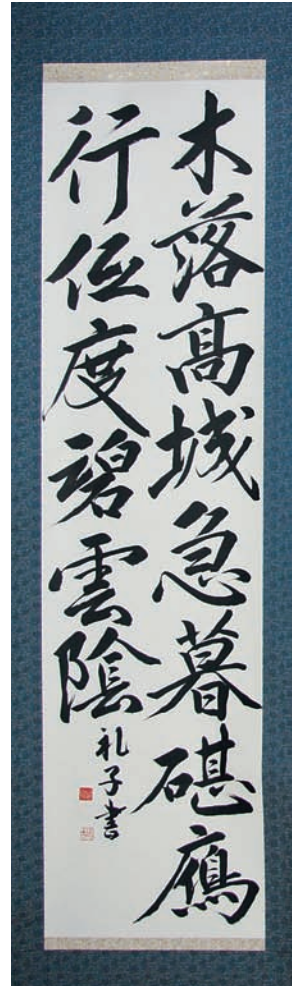 木落髙城急暮碪鴈
行低度碧雲陰
礼子書